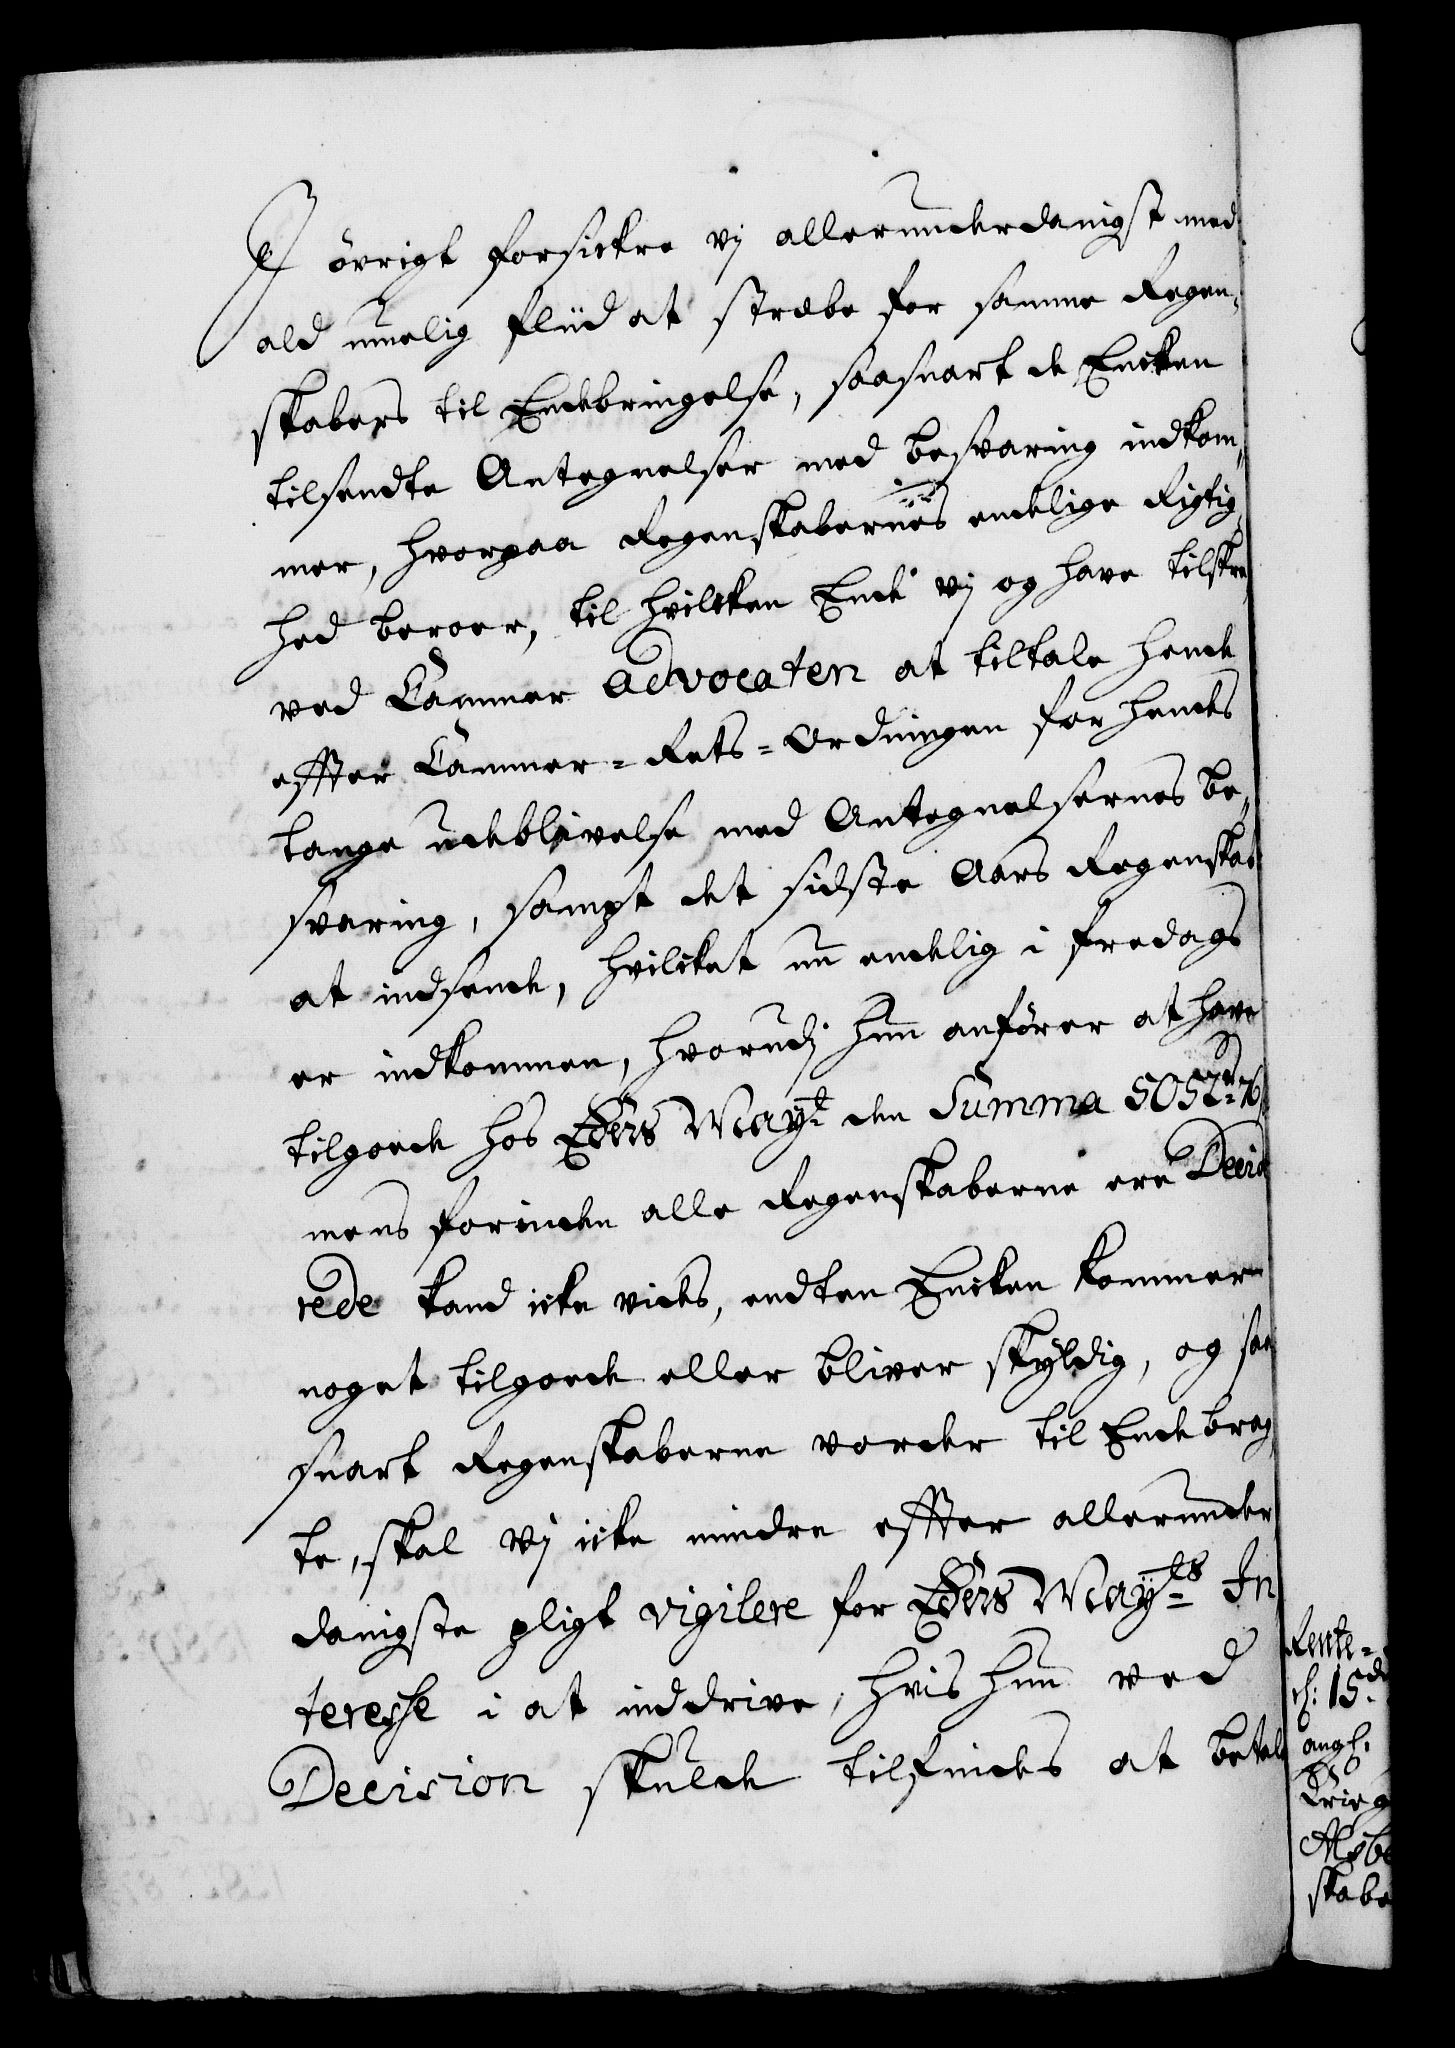 I övrigt forsickre vj allerunderdanigst med
ald muelig fliid at stræbe for samme Regen-
skabers til Endebringelse, saasnart de Encken
tilsendte Antegnelser med besvaring indkom-
mer, hvorpaa Regenskabernes endelige Rigtig-
hed beroer, til hvilcken Ende vj og have tilskre-
ved Cammer Advocaten at tiltale hende
effter Cammer-Rets-Ordningen for hendes
lange udeblivelse med Antegnelsernes be-
svaring, sampt det sidste Aars Regenskab
at indsende, hvilcket nu endelig i fredags
er indkommen, hvorudj hun anförer at have
tilgode hos Eders Mayt: den Summa 5052 rd
mens forinden alle Regenskaberne ere Deci-
rede kand icke vides, endten Encken kommer
noget tilgode eller bliver skyldig, og saa
snart Regenskaberne vorder til Ende brag-
te, skal vj icke mindre effter allerunder
danigste pligt vigilere for Eders Mayts: In
teresse i at inddrive, hvis hun ved
Decision skulde tilfindes at betale
Rente-
15de
Krig
skabe